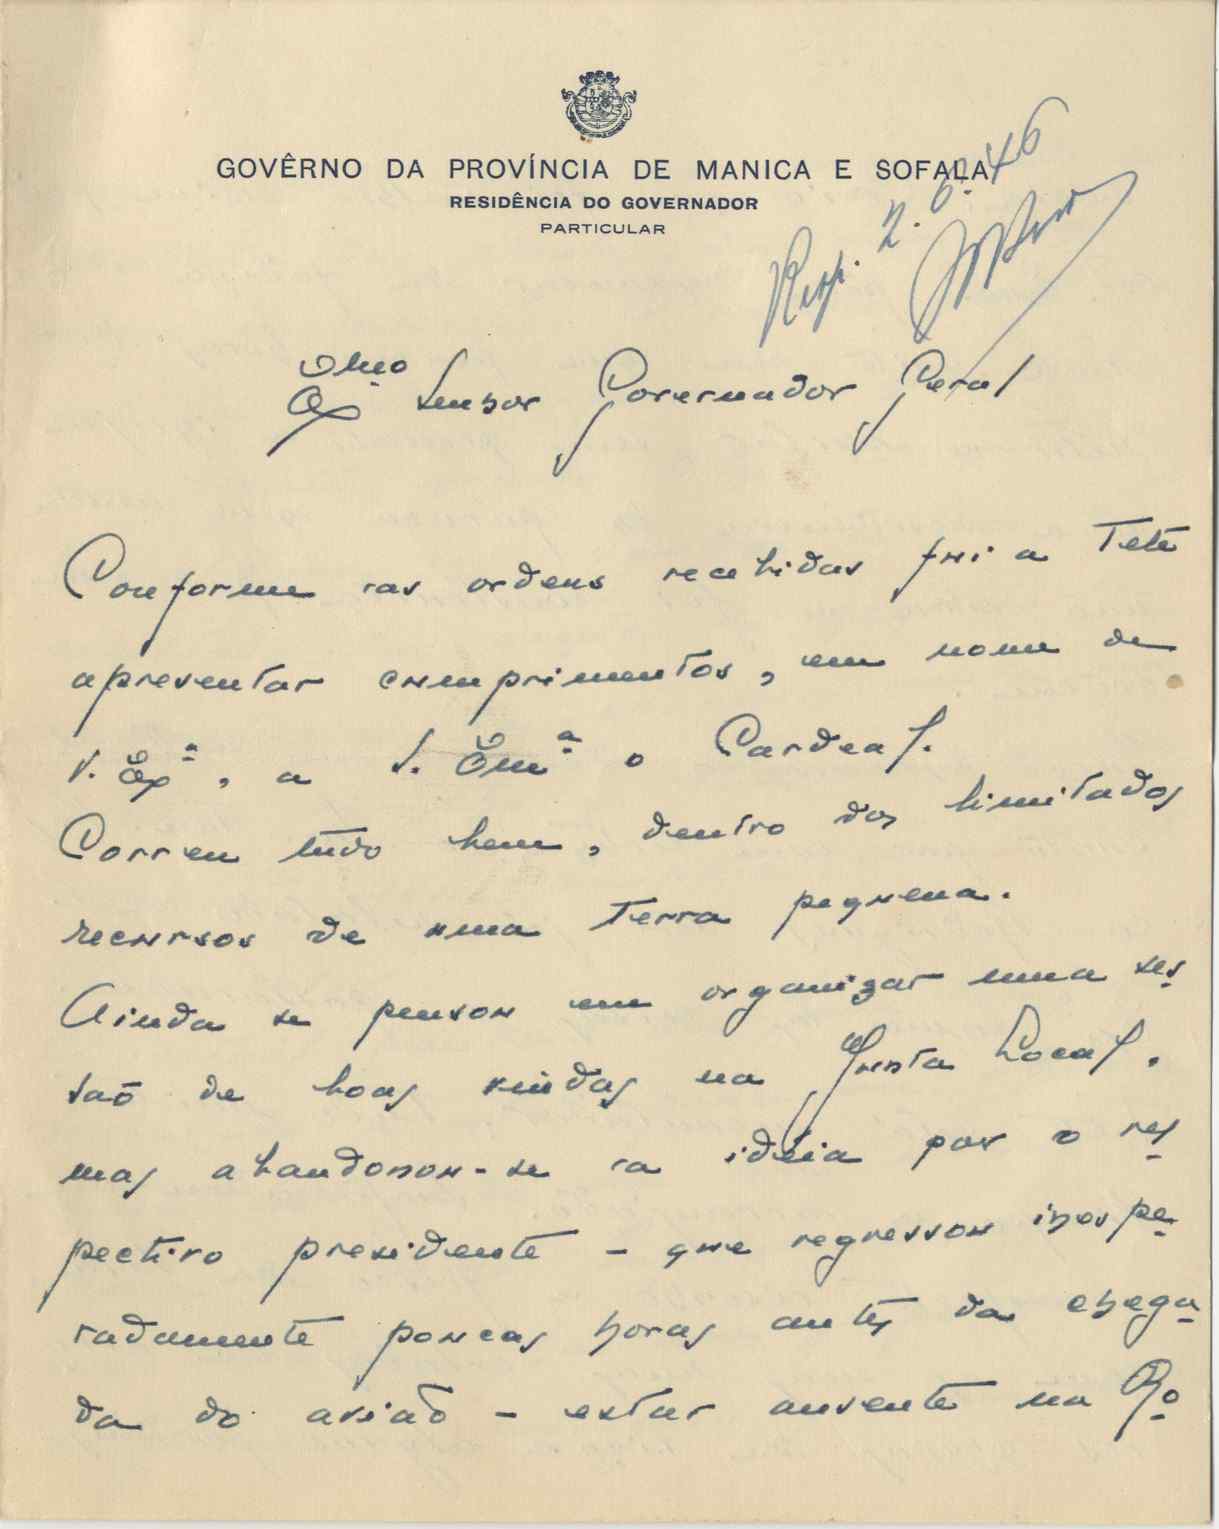 GOVÊRNO DA PROVÍNCIA DE MANICA E SOFALA
RESIDÊNCIA DO GOVERNADOR
PARTICULAR
Resp. 2.6.46
Senhor Governador Geral
Conforme as ordens recebidas fui a Tete
apresentar cumprimentos, em nome de
V. Exª, a S. Emª o Cardeal.
Correu tudo bem, dentro dos limitados
recursos de uma terra pequena.
Ainda se pensou em organizar uma ses-
saõ de boas vindas na Junta Local,
mas abandonou-se a idéia por o res-
pectivo presidente - que regressou inespe-
radamente poucas horas antes da chega-
da do aviaõ - estar ausente na Ro-